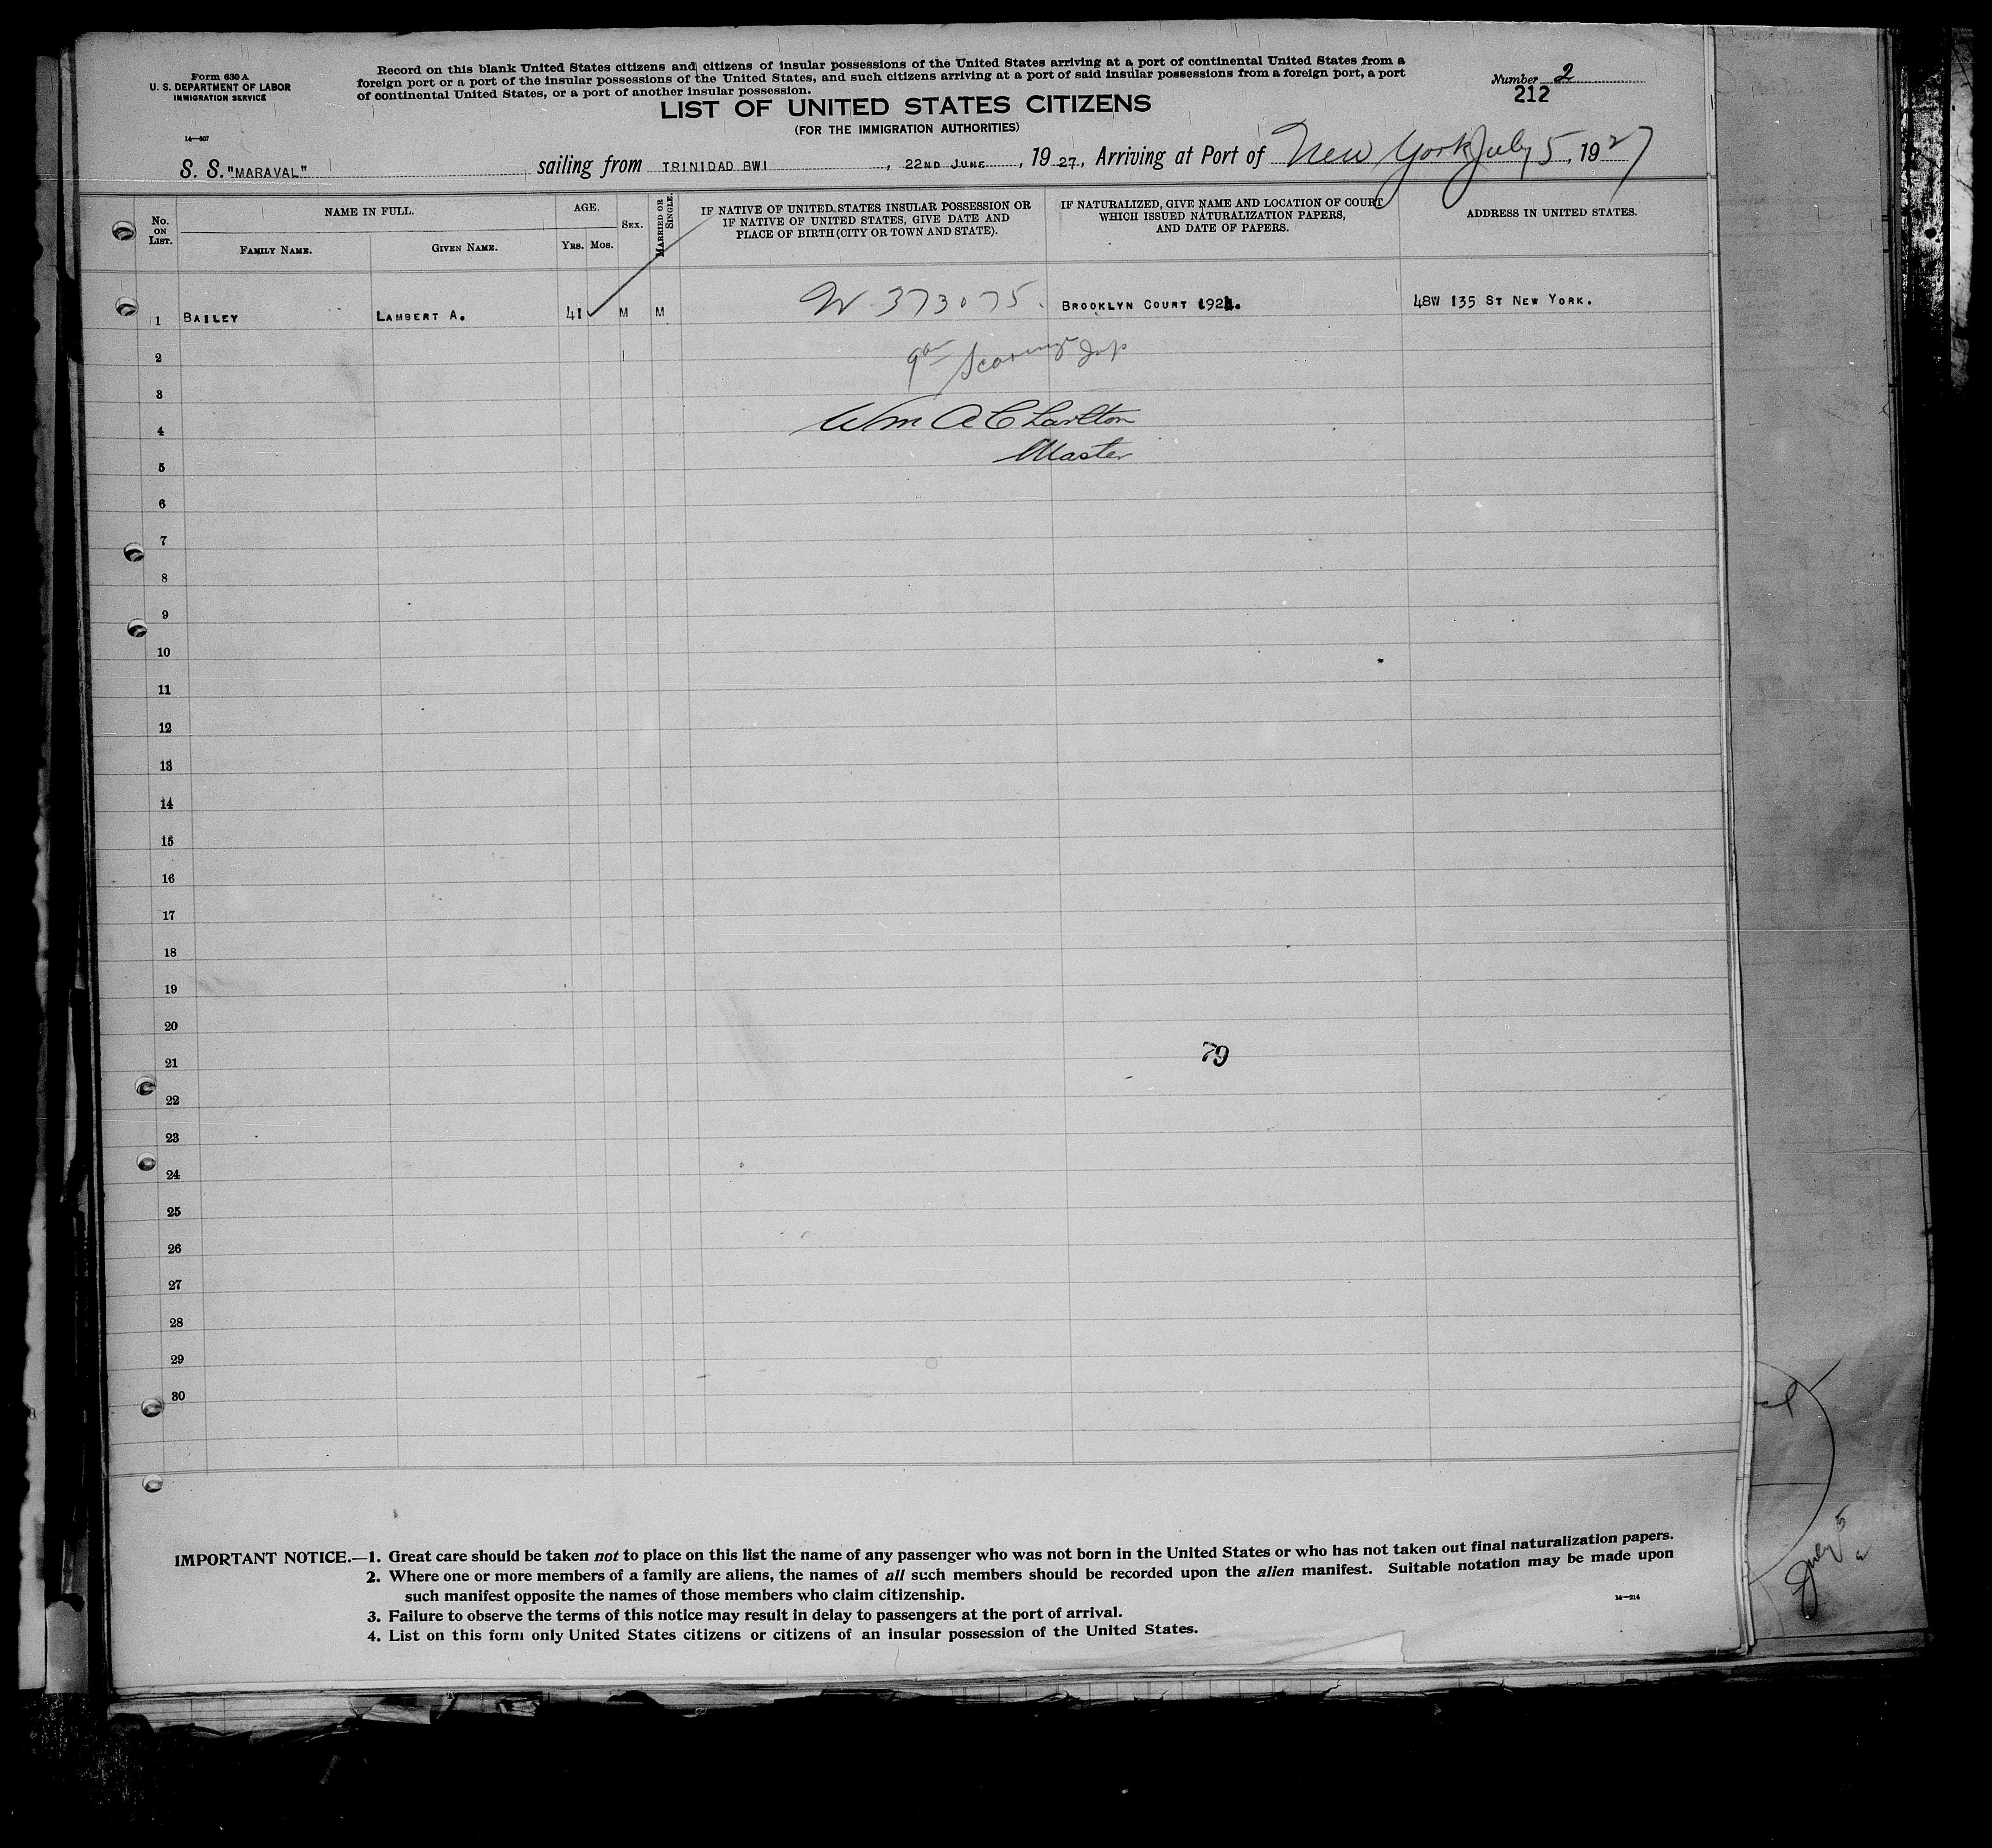 Form 630 A
U. S. DEPARTMENT OF LABOR
IMMIGRATION SERVICE
14—407
Record on this blank United States citizens and citizens of insular possessions of the United States arriving at a port of continental United States from a
foreign port or a port of the insular possessions of the United States, and such citizens arriving at a port of said insular possessions from a foreign port, a port
of continental United States, or a port of another insular possession.
Number 2
212
LIST OF UNITED STATES CITIZENS
(FOR THE IMMIGRATION AUTHORITIES)
S. S. "MARAVAL" sailing from TRINIDAD BWI, 22ND JUNE, 1927, Arriving at Port of New York July 5, 1927
No. ON LIST.
NAME IN FULL.
FAMILY NAME.
GIVEN NAME.
AGE.
YRS. MOS.
SEX.
MARRIED OR SINGLE.
IF NATIVE OF UNITED STATES INSULAR POSSESSION OR
IF NATIVE OF UNITED STATES, GIVE DATE AND
PLACE OF BIRTH (CITY OR TOWN AND STATE).
IF NATURALIZED, GIVE NAME AND LOCATION OF COURT
WHICH ISSUED NATURALIZATION PAPERS,
AND DATE OF PAPERS.
ADDRESS IN UNITED STATES.
1 BAILEY LAMBERT A. 41 M M 373075. BROOKLYN COURT 1921. 48W 135 ST NEW YORK.
2
3
4 Wm A Charlton
Master
5
6
7
8
9
10
11
12
13
14
15
16
17
18
19
20
21
79
22
23
24
25
26
27
28
29
30
IMPORTANT NOTICE.—1. Great care should be taken not to place on this list the name of any passenger who was not born in the United States or who has not taken out final naturalization papers.
2. Where one or more members of a family are aliens, the names of all such members should be recorded upon the alien manifest. Suitable notation may be made upon
such manifest opposite the names of those members who claim citizenship.
3. Failure to observe the terms of this notice may result in delay to passengers at the port of arrival.
4. List on this form only United States citizens or citizens of an insular possession of the United States.
14—214
July 5